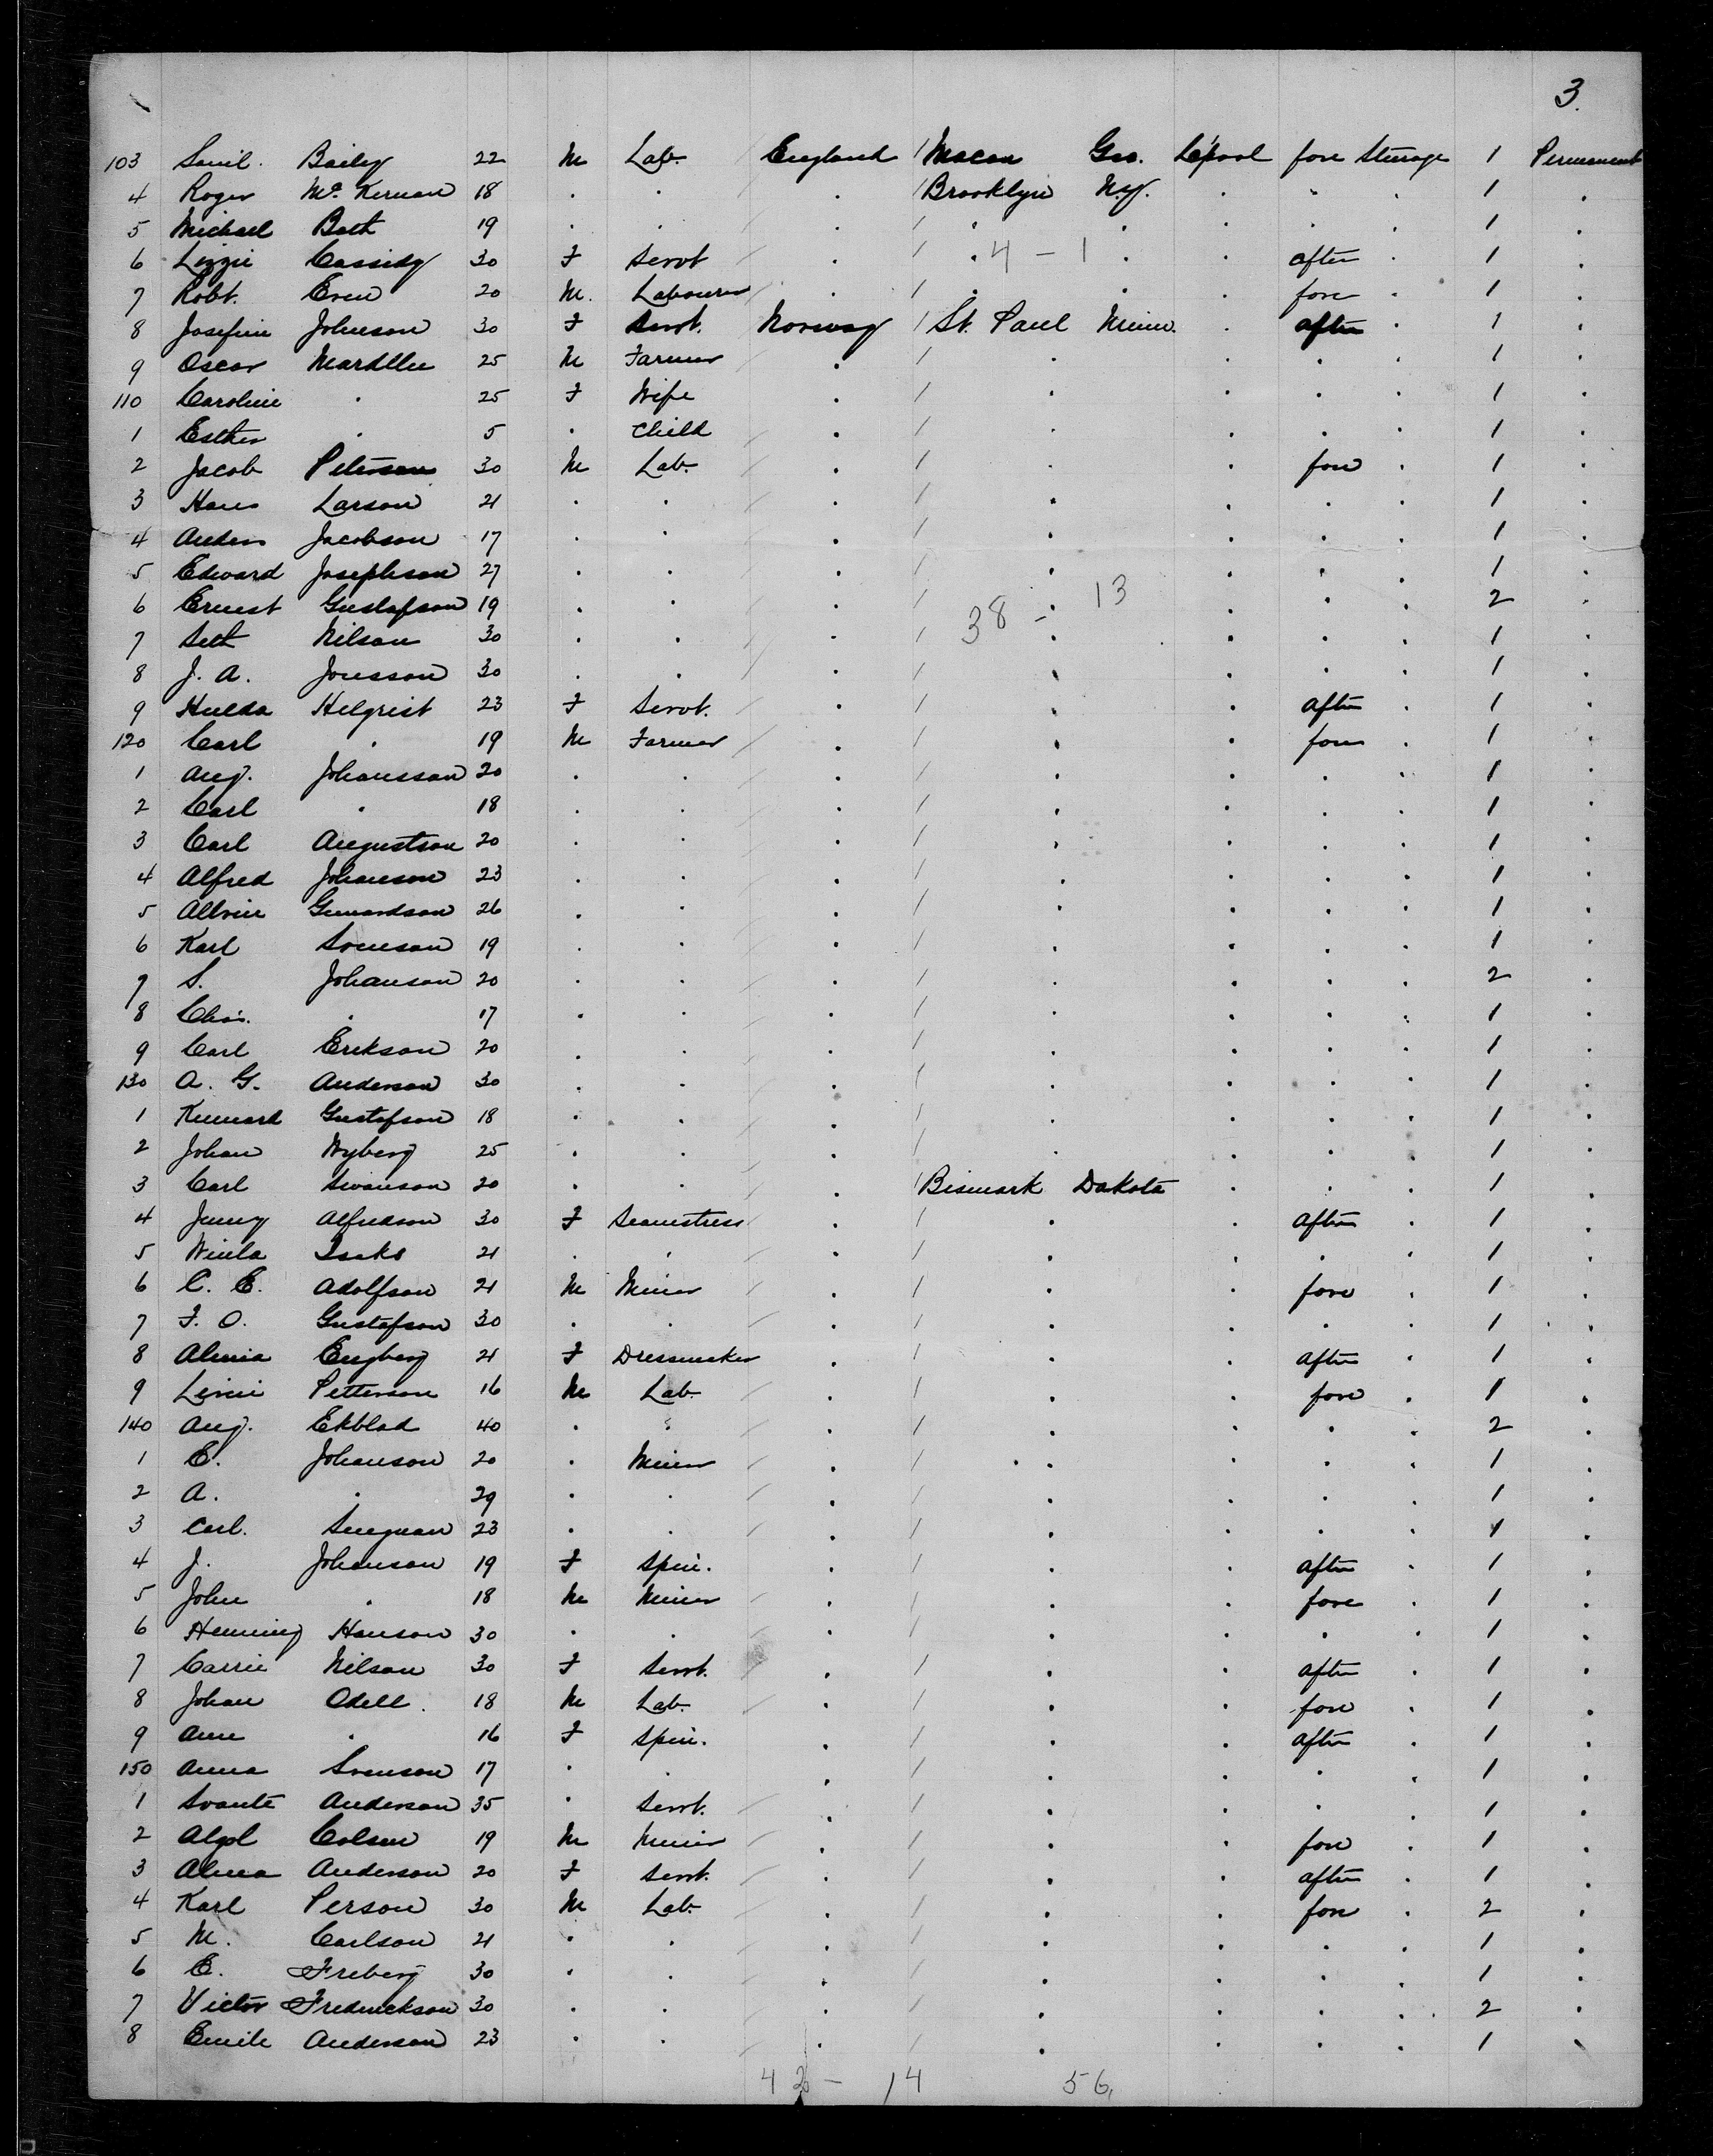 3.
103 Saml. Bailey 22 M Lab. England / Macon Geo. L'pool fore Steerage 1 Permanent
4 Roger Mc Kernan 18 . . . / Brooklyn N.y. . . . 1 .
5 Michael 19 . . . / . . . . . 1 .
6 Lizzie Cassidy 30 F Servt . / . 4 - 1 . . after . 1 .
7 Robt. Even 20 M. Labourer . / . . . fore . 1 .
8 Josefine Johnson 30 F Servt. Norway / St. Paul Minn. . after . 1 .
9 Oscar 25 M Farmer . / . . . . 1 .
110 Caroline . 25 F Wife . / . . . . 1 .
1 Esther . 5 . Child . / . . . . 1 .
2 Jacob Peterson 30 M Lab. . / . . fore . 1 .
3 Hans Larson 21 . . . / . . . . 1 .
4 Anders Jacobson 17 . . . / . . . . 1 .
5 Edward Josephson 27 . . . / . . . . 1 .
6 Ernest Gustafson 19 . . . / . 38 - 13 . . . 2 .
7 Seth Nilson 30 . . . / . . . . 1 .
8 J. A. Jonsson 30 . . . / . . . . 1 .
9 Hulda Helgrist 23 F Servt. . / . . after . 1 .
120 Carl . 19 M Farmer . / . . fore . 1 .
1 Aug. Johansson 20 . . . / . . . . 1 .
2 Carl . 18 . . . / . . . . 1 .
3 Carl Augustson 20 . . . / . . . . 1 .
4 Alfred Johanson 23 . . . / . . . . 1 .
5 26 . . . / . . . . 1 .
6 Karl Svenson 19 . . . / . . . . 1 .
7 S. Johanson 20 . . . / . . . . 2 .
8 Chas. . 17 . . . / . . . . 1 .
9 Carl Erikson 20 . . . / . . . . 1 .
130 A. G. Anderson 30 . . . / . . . . 1 .
1 Gustafson 18 . . . / . . . . 1 .
2 Johan Nyberg 25 . . . / . . . . 1 .
3 Carl Swanson 20 . . . / Bismark Dakota . . . 1 .
4 Jenny Alfredson 30 F Seamstress . / . . after . 1 .
5 21 . . . / . . . . 1 .
6 C. E. Adolfson 21 M Miner . / . . fore . 1 .
7 F. O. Gustafson 30 . . . / . . . . 1 .
8 Engberg 21 F Dressmaker . / . . after . 1 .
9 Petterson 16 M Lab. . / . . fore . 1 .
140 Aug. Ekblad 40 . . . / . . . . 2 .
1 E. Johanson 20 . Miner . / . . . . 1 .
2 A. . 29 . . . / . . . . 1 .
3 Carl. 23 . . . / . . . . 1 .
4 J. Johanson 19 F Spin. . / . . after . 1 .
5 John . 18 M Miner . / . . fore . 1 .
6 Henning Hanson 30 . . . / . . . . 1 .
7 Carrie Nilson 30 F Servt. . / . . after . 1 .
8 Johan Odell. 18 M Lab. . / . . fore . 1 .
9 Ann . 16 F Spin. . / . . after . 1 .
150 Anna Svenson 17 . . . / . . . . 1 .
1 Svante Anderson 35 . Servt. . / . . . . 1 .
2 19 M Miner . / . . fore . 1 .
3 Alma Anderson 20 F Servt. . / . . after . 1 .
4 Karl Person 30 M Lab. . / . . fore . 2 .
5 M. Carlson 21 . . . / . . . . 1 .
6 E. Freberg 30 . . . / . . . . 1 .
7 Victor Fredrickson 30 . . . / . . . . 2 .
8 Emile Anderson 23 . . . / . . . . 1 .
42 - 14 56.